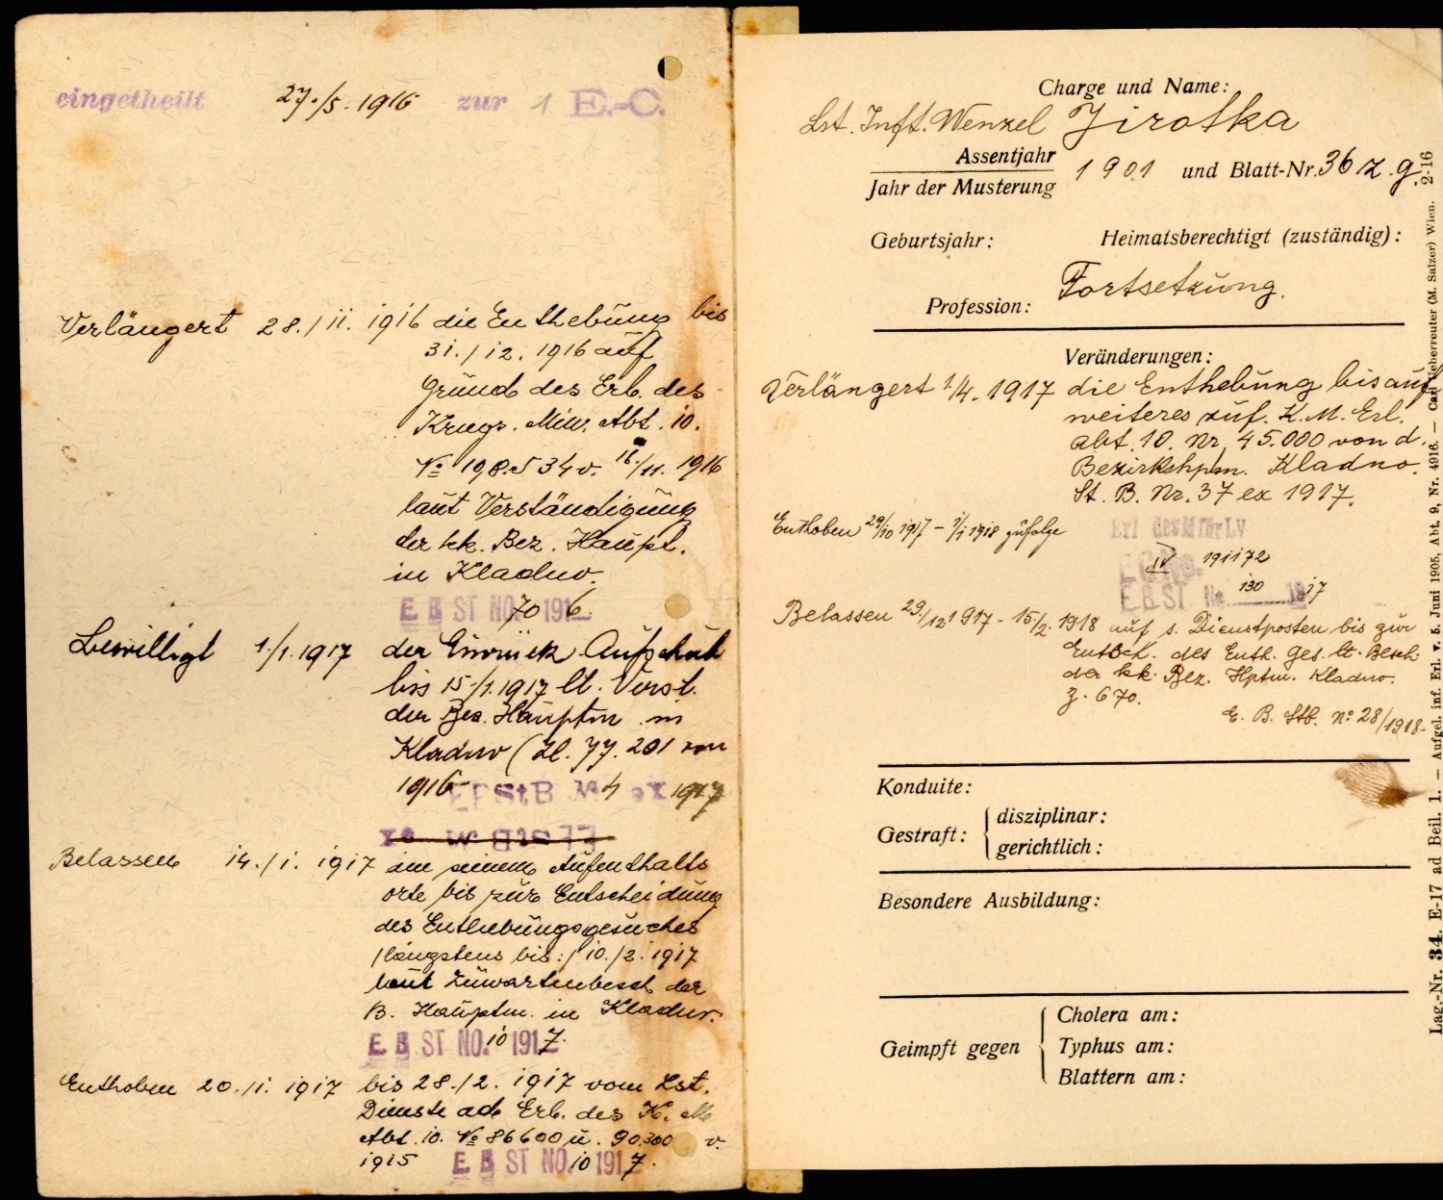 eingetheilt 27./5. 1916 zur 1 E.-C.
Verlängert 28./11. 1916 die Enthebung bis
31./12. 1916 auf
Grund des Erl. des
Kriegs. Min. Abt. 10.
No 198.534 v. 18/11. 1916
laut Verständigung
der kk. Bez. Haupt.
in Kladno.
E. B ST NO. 70 1916.
Bewilligt 1./1. 1917 der Einrück. Aufschub
bis 15/1. 1917 lt. Verst.
der Bez. Hauptm. in
Kladno (Zl. 77. 201 von
1916 EBStB No 4 ex 1917
Belassen 14./1. 1917 in seinem Aufenthalts
orte bis zur Entscheidung
des Enthebungsgesuches
/längstens bis:/ 10./2. 1917
laut Zuwartenbesch der
B. Hauptm. in Kladno.
E. B ST NO. 10 1917.
Enthoben 20./1. 1917 bis 28./2. 1917 vom Lst.
Dienste ad Erl. des K. M
Abt. 10. No 86600 u. 90.300 v.
1915 E. B ST NO. 10 1917.
Charge und Name:
Lst. Inft. Wenzel Jirotka
Assentjahr
Jahr der Musterung 1901 und Blatt-Nr. 36 z. g.
Geburtsjahr: Heimatsberechtigt (zuständig):
Fortsetzung.
Profession:
Veränderungen:
Verlängert 1./4. 1917 die Enthebung bis auf
weiteres zuf. K. M. Erl.
Abt. 10. Nr. 45.000 von d.
Bezirkshptm. Kladno.
St. B. Nr. 37 ex 1917.
Enthoben 29/10 1917 - 1/1 1918 zufolge Erl des M für LV
IV 191172
E.B.ST No. 130 1917
Belassen 29./12 1917 - 15/2. 1918 auf s. Dienstposten bis zur
Entsch. des Enth. Ges. lt. Besch
der kk. Bez. Hptm. Kladno.
Z. 670.
E. B. Stb. No 28/1918.
Konduite:
Gestraft: disziplinar:
gerichtlich:
Besondere Ausbildung:
Geimpft gegen Cholera am:
Typhus am:
Blattern am:
Lag.-Nr. 34. E-17 ad Beil. 1. — Aufgel. inf. Erl. v. 5. Juni 1905, Abt. 9, Nr. 4916. — Carl Ueberreuter (M. Salzer) Wien. 2-16